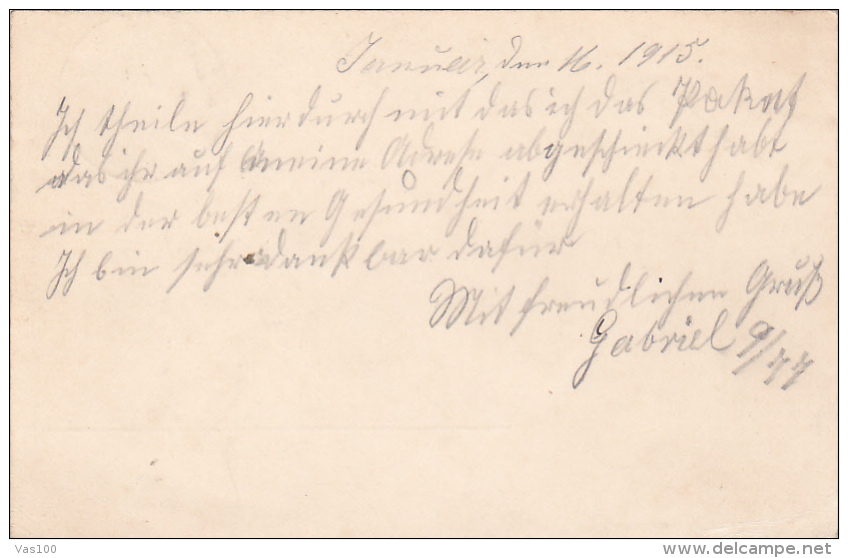 Januar, den 16. 1915.
Ich theile hierdurch mit das ich das Pakat
das ihr auf meine Adrese abgeschickt habt
in der besten Gesundheit erhalten habe
Ich bin sehr dankbar dafür
Mit freudlichen Gruß
Gabriel 9/77
Vas100
delcampe.net